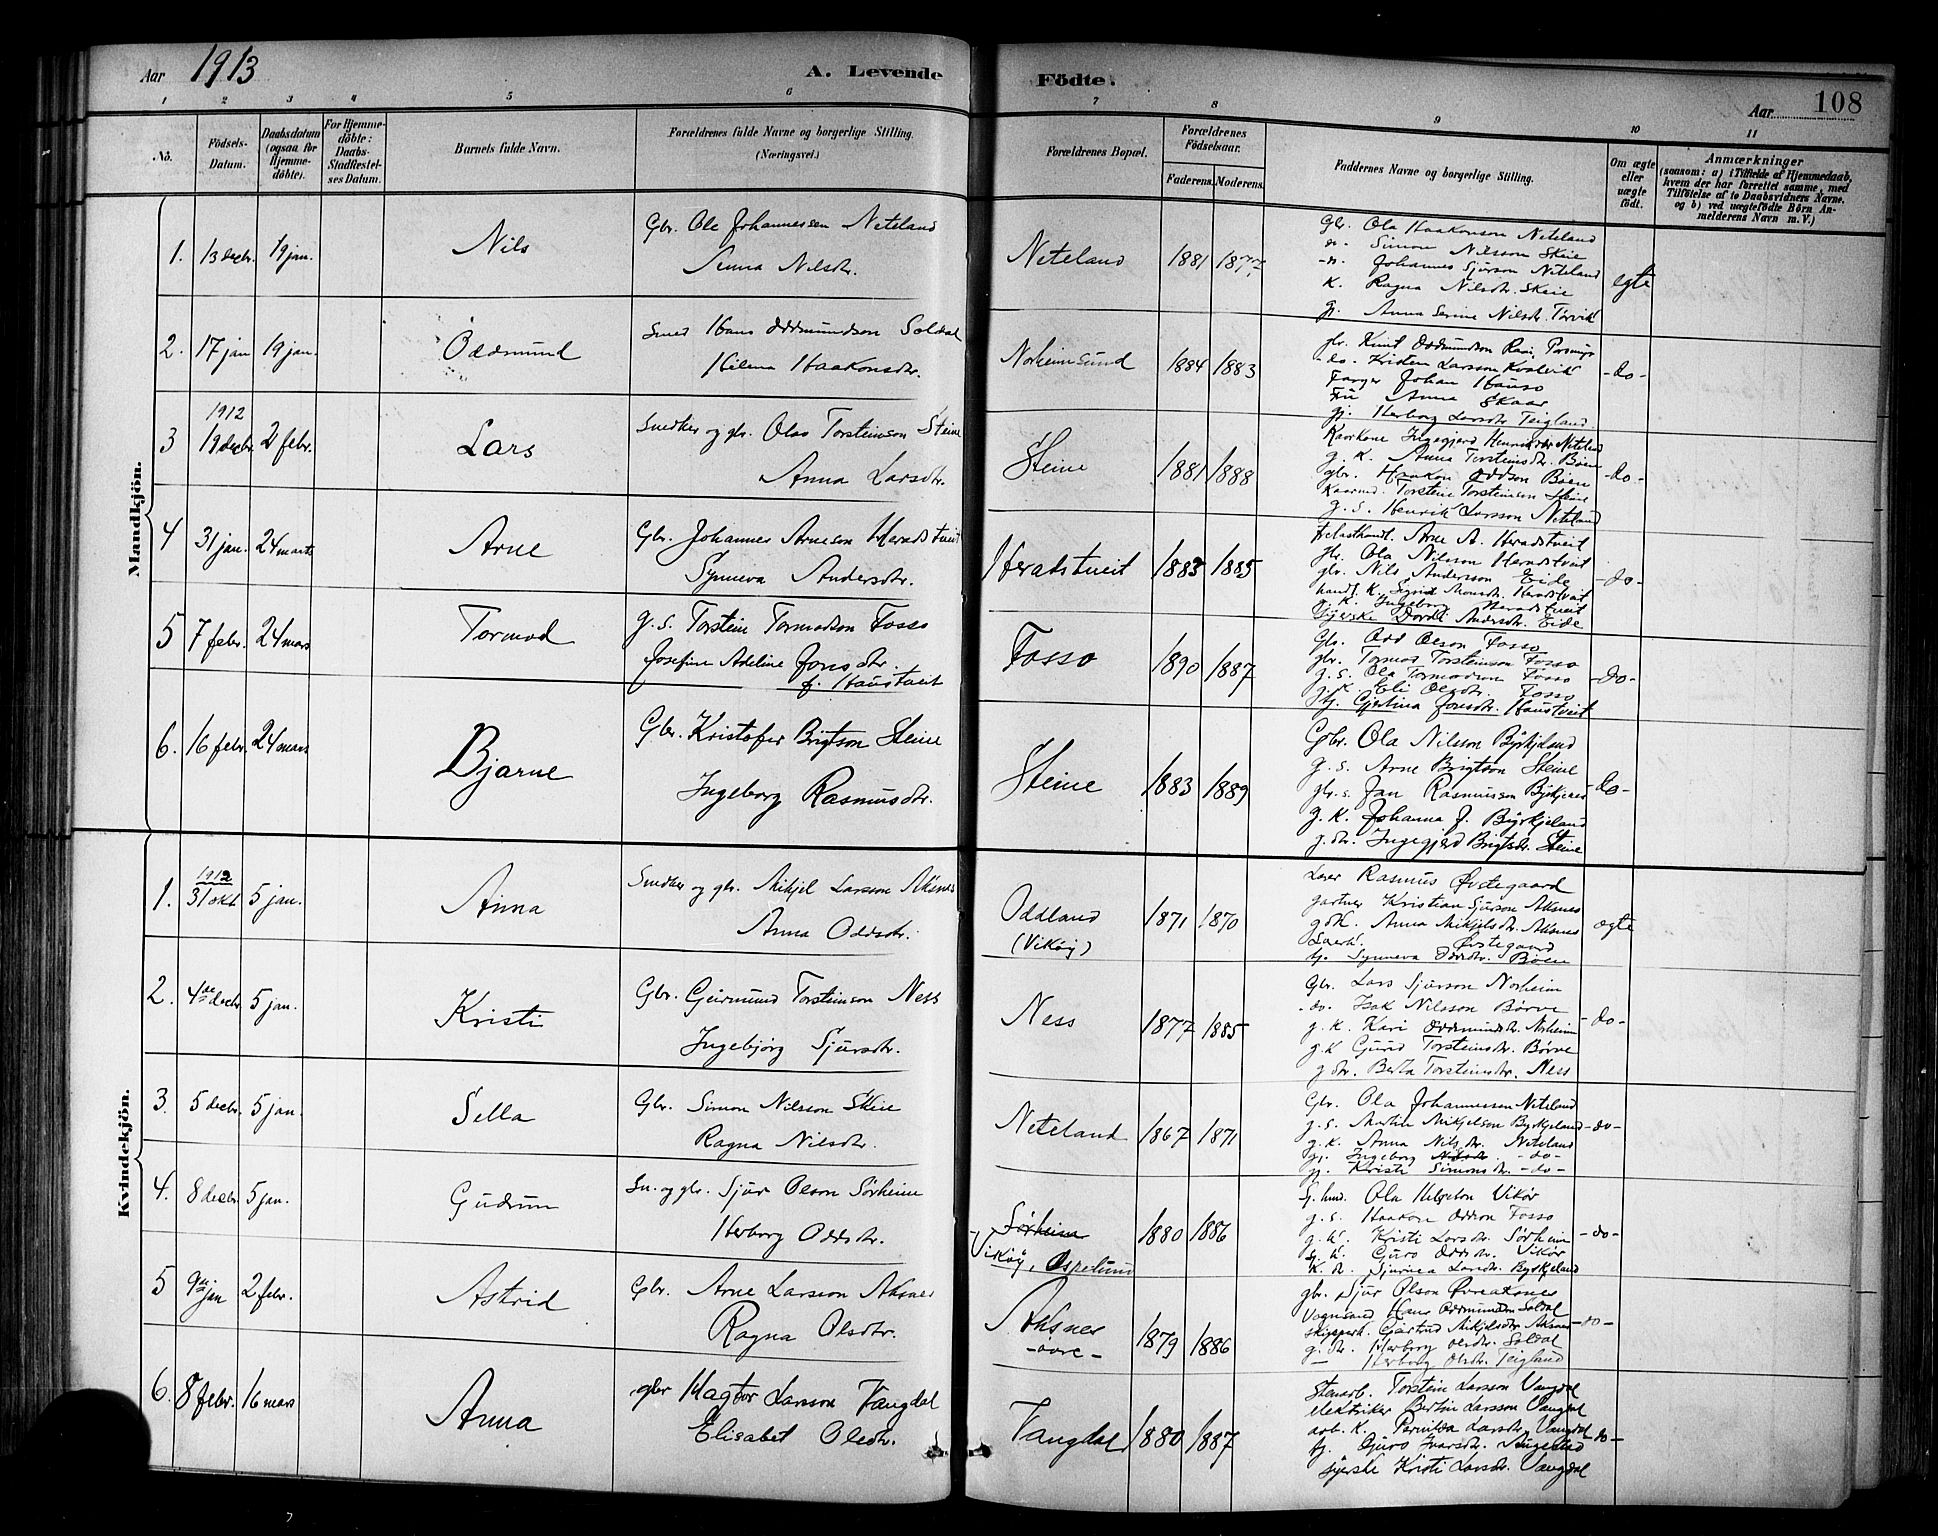 Aar 1913
A. Levende Födte.
Aar 108
1 2 3 4 5 6 7 8 9 10 11
No.
Födsels-
Datum.
Daabsdatum
(ogsaa for
Hjemme-
döbte).
For Hjemme-
döbte:
Daabs-
Stadfæstel-
ses Datum.
Barnets fulde Navn.
Forældrenes fulde Navne og borgerlige Stilling.
(Næringsvei.)
Forældrenes Bopæl.
Forældrenes
Födselsaar.
Faderens. Moderens.
Faddernes Navne og borgerlige Stilling.
Om ægte
eller
uægte
födt.
Anmærkninger
(saasom: a) i Tilfælde af Hjemmedaab,
hvem der har forrettet samme, med
Tilföielse af to Daabsvidners Navne.
og b) ved uægtefödte Börn An-
melderens Navn m. V.)
Mandkjön.
1. 13 decbr. 19 jan. Nils
Gbr. Ole Johannessen Neteland
Anna Nilsdtr.
Neteland 1881 1877
Gbr. Ola Haakonson Neteland
-n- Simon Nilsson Skeie
-n- Johannes Sjurson Neteland
K. Ragna Nilsdtr. Skeie
gj. Anna Serine Nilsdtr. Torvik
egte
2. 17 jan 19 jan. Oddmund
Smed Hans Oddmundson Soldal
Helena Haakonsdtr.
Norheimsund 1884 1883
gbr. Knut Oddmundson
-do- Kristen Larsson
Farger Johan Hauso
Fru Anna Skaar
gj. Herborg Larsdtr Teigland
-do-
3 1912
19 decbr. 2 febr. Lars
Snedker og gbr. Olav Torsteinson Steine
Anna Larsdtr.
Steine 1881 1888
Kaarkone Ingegjerd Henriksdtr Neteland
g. K. Anna Torsteinsdtr. Böen
gbr. Haakon Oddson Böen
Kaarmd. Torstein Torsteinson Steine
g. s. Henrik Larsson Neteland
-do-
4 31 jan. 24 marts Arne
Gbr. Johannes Arneson Heradstveit
Synneva Andersdtr.
Heradstveit 1883 1885
Arne A. Heradstveit
gbr. Ola Nilsson Heradstveit
gbr. Nils Andersson Eide
Heradstveit
g. K. Ingeborg Heradstveit
Syerske Andersdtr. Eide
-do-
5 7 febr. 24 mars Tormod
g. s. Torstein Tormodson Fosso
Josefine Adeline Jonsdtr.
f. Haustveit
Fosso 1890 1887
Gbr. Odd Olson Fosso
gbr. Tormod Torsteinson Fosso
g. s. Ola Tormodson Fosso
g. K. Eli Olsdtr. Fosso
tj. Gjertina Jonsdtr. Haustveit
-do-
6. 16 febr. 24 mars Bjarne
Gbr. Kristofer Brigtson Steine
Ingeborg Rasmusdtr.
Steine 1883 1889
Gbr. Ola Nilsson Byrkjeland
g. s. Arne Brigtson Steine
gbr. s. Jan Rasmusson
g. K. Johanna J. Byrkjeland
g. dtr. Ingegjerd Brigtsdtr. Steine
-do-
Kvindekjön.
1. 1912
31 okt 5 jan. Anna
Snedker og gbr. Mikjel Larsson Aksnes
Anna Oddsdtr.
Oddland
(Vikøy) 1871 1870
Lærer Rasmus Øvstegaard
gartner Kristian Sjurson Aksnes
g. dtr. Anna Mikjelsdtr. Aksnes
Lærerk. Øvstegaard
tj. Synneva Oddsdtr. Böen
egte
2. 4de decbr 5 jan. Kristi
Gbr. Geirmund Torsteinson Ness
Ingebjörg Sjursdtr.
Ness 1877 1885
Gbr. Lars Sjurson Norheim
-do- Isak Nilsson Börve
g. K. Kari Oddmundsdtr. Norheim
g. K Guro Torsteinsdtr. Börve
g. dtr. Berta Torsteinsdtr. Ness
-do-
3. 5 decbr. 5 jan. Sella
Gbr. Simon Nilsson Skeie
Ragna Nilsdtr.
Neteland 1867 1871
Gbr. Ola Johannessen Neteland
g. s. Martin Mikjelson Byrkjeland
g. K. Anna Nilsdtr. Neteland
gj. Ingeborg Nilsdtr. -do-
gj. Kristi Simonsdtr. -do-
-do-
4. 8 decbr 5 jan. Gudrun
Sn. og gbr. Sjur Olson Sörheim
Herborg Oddsdtr.
Sörheim
Vikøy, Espelund 1880 1886
Ola Helgeson Vikör
g. s. Haakon Oddson Fosso
g. K. Kristi Larsdtr. Sörheim
Guro Oddsdtr. Vikör
Larsdtr. Byrkjeland
-do-
5 9de jan 2 febr. Astrid
Gbr. Arne Larsson Aksnes
Ragna Olsdtr.
Aksnes
-övre- 1879 1886
gbr. Sjur Olson Övreaksnes
Vognmand Hans Oddmundson Soldal
skipperk. Gjertrud Mikjelsdtr. Aksnes
g. dtr. Herborg Olsdtr. Soldal
— Herborg Olsdtr. Teigland
-do-
6. 8 febr. 16 mars Anna
gbr Hagtor Larsson Vangdal
Elisabet Olsdtr.
Vangdal 1880 1887
Stenarb. Torstein Larsson Vangdal
elektriker Bertin Larsson Vangdal
arb. K. Pernilla Larsdtr. Vangdal
tj. Guro Ivarsdtr.
syerske Kristi Larsdtr. Vangdal
-do-